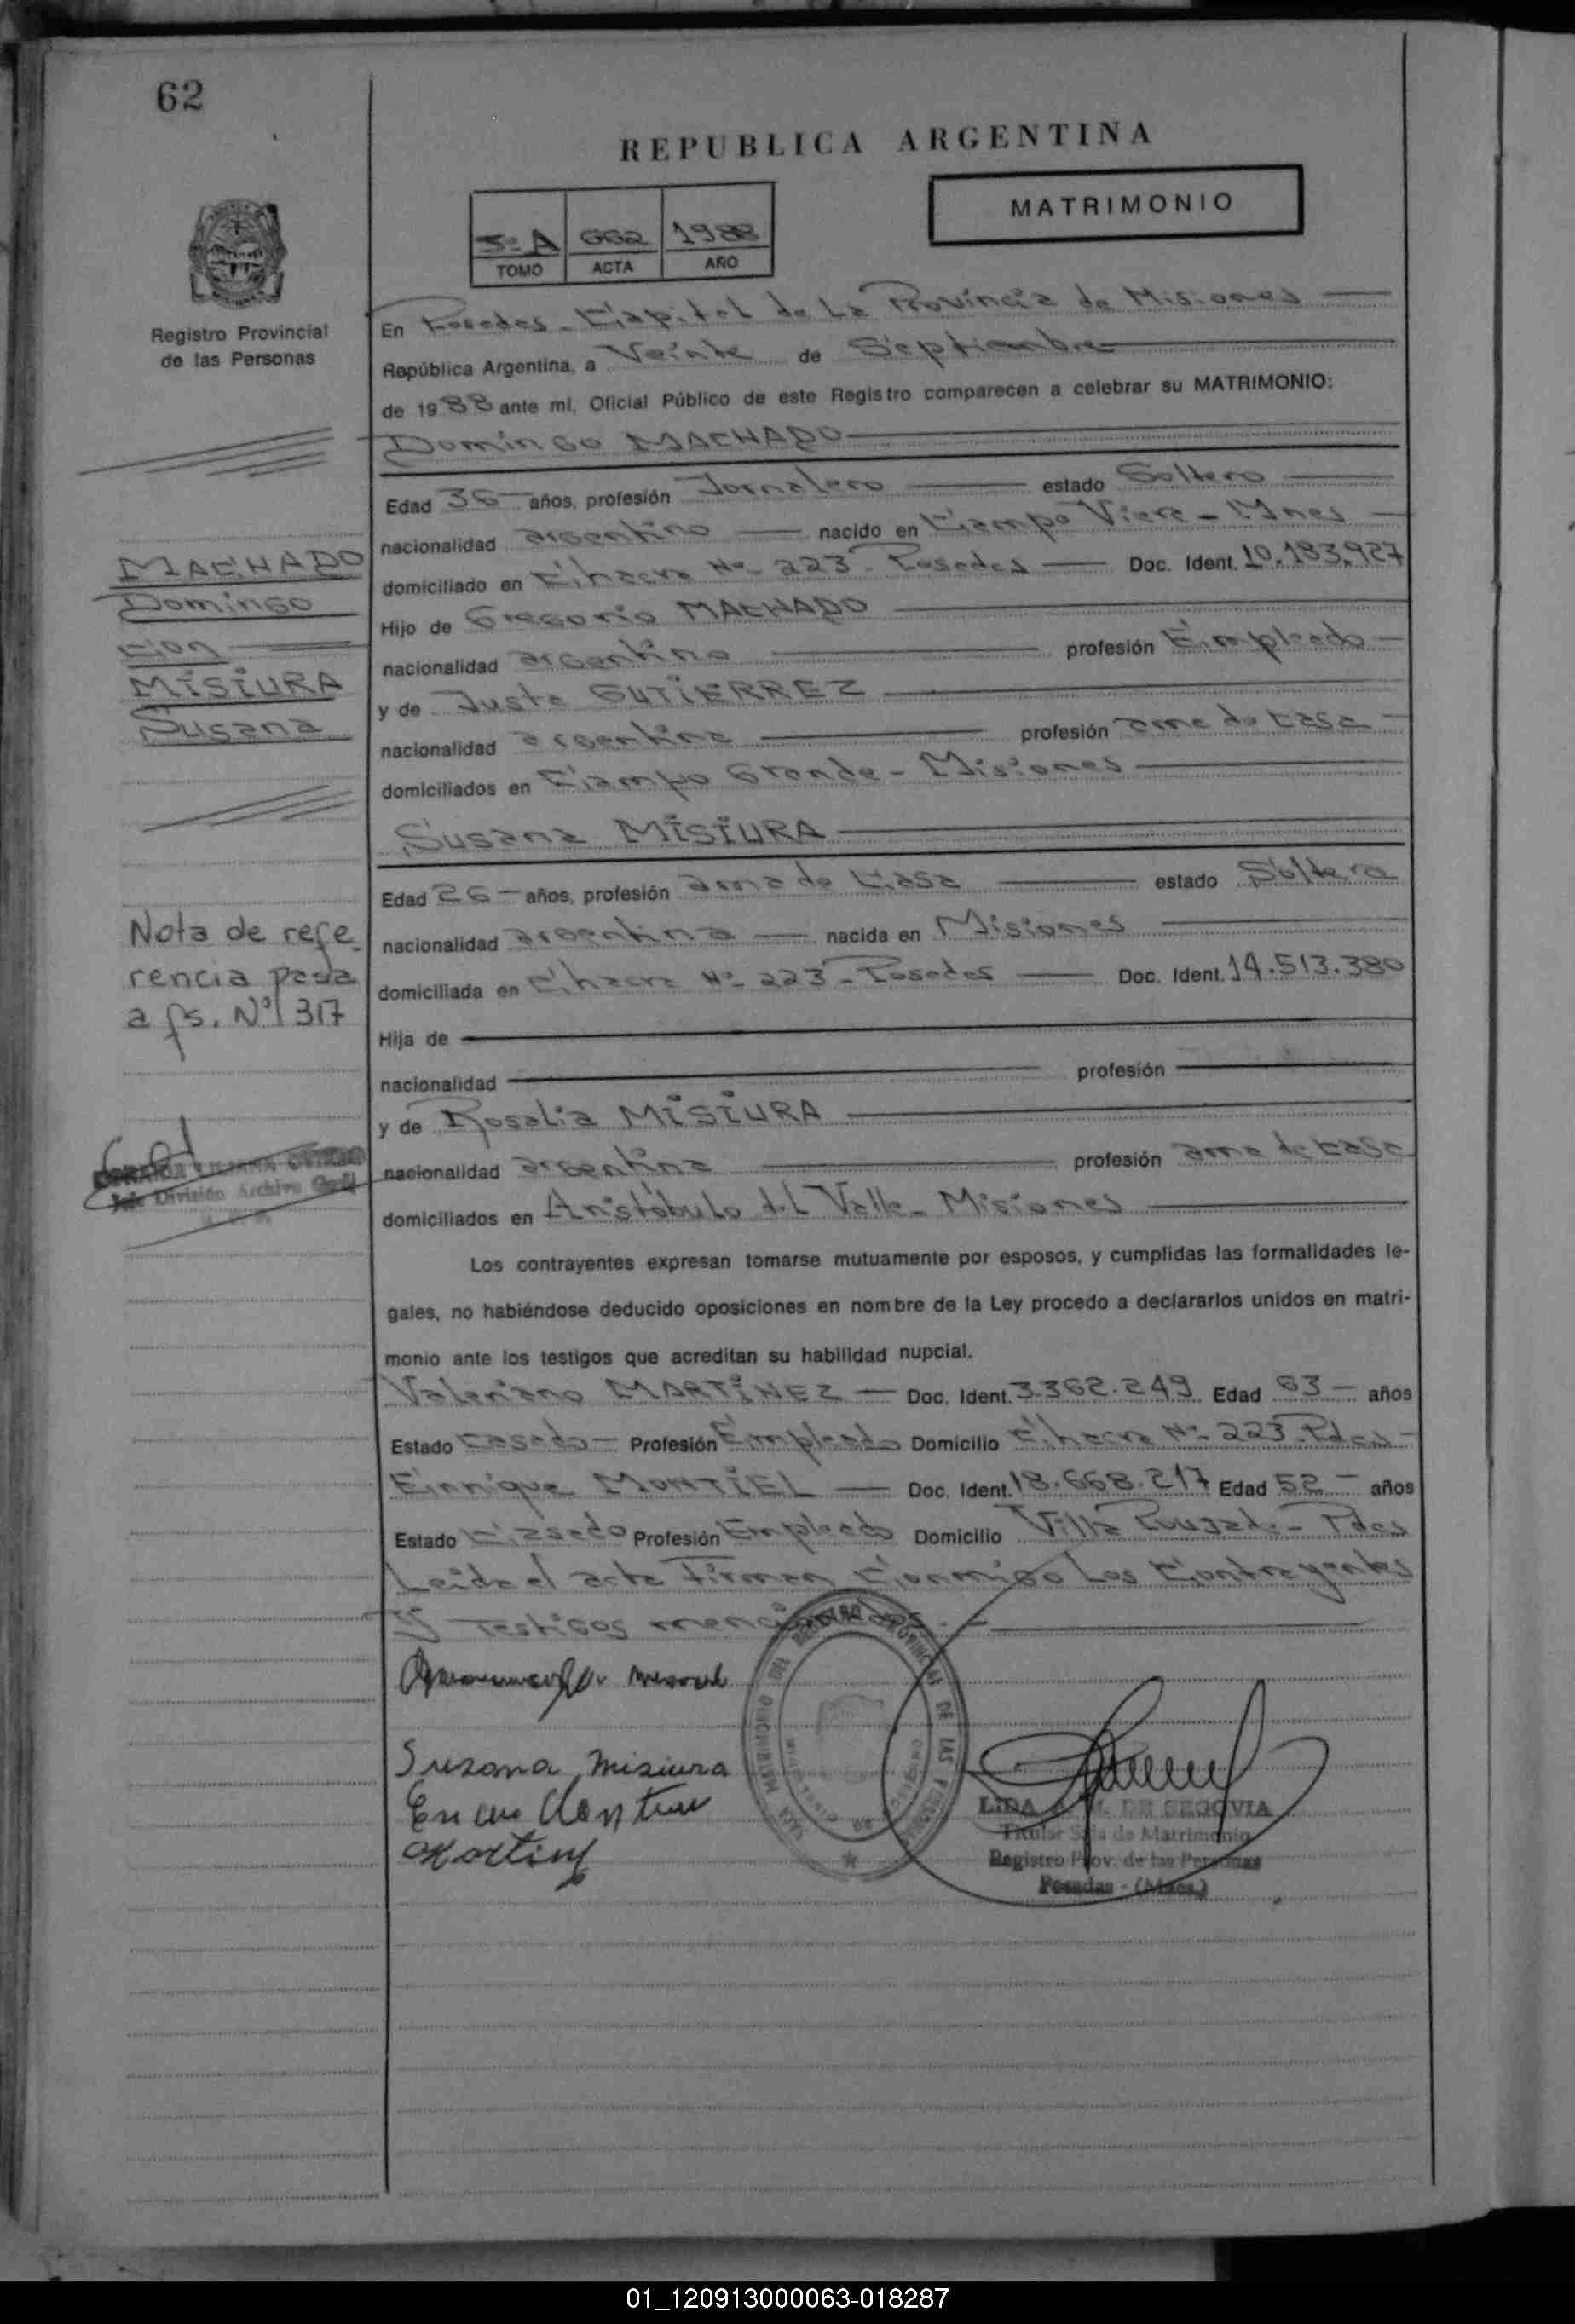 62
REPUBLICA ARGENTINA
MATRIMONIO
5º A 662 1988
TOMO ACTA AÑO
Registro Provincial
de las Personas
En Posadas - Capital de La Provincia de Misiones
República Argentina, a Veinte de Septiembre
de 1988 ante mi, Oficial Público de este Registro comparecen a celebrar su MATRIMONIO:
Domingo MACHADO
Edad 36 años, profesión Jornalero estado Soltero
nacionalidad argentino nacido en Campo Viera - Mnes
domiciliado en Chacra Nº 223 - Posadas Doc. Ident. 10.183.927
Hijo de Gregorio MACHADO
nacionalidad argentino profesión Empleado
y de Justa GUTIERREZ
nacionalidad argentina profesión ama de casa
domiciliados en Campo Grande - Misiones
Susana MISIURA
Edad 26 años, profesión ama de Casa estado Soltera
nacionalidad argentina nacida en Misiones
domiciliada en Chacra Nº 223 - Posadas Doc. Ident. 14.513.380
Hija de
nacionalidad profesión
y de Rosalia MISIURA
nacionalidad argentina profesión ama de casa
domiciliados en Aristóbulo del Valle - Misiones
Los contrayentes expresan tomarse mutuamente por esposos, y cumplidas las formalidades le-
gales, no habiéndose deducido oposiciones en nombre de la Ley procedo a declararlos unidos en matri-
monio ante los testigos que acreditan su habilidad nupcial.
Valeriano MARTINEZ Doc. Ident. 3.362.249 Edad 63 años
Estado casado Profesión Empleado Domicilio Chacra Nº 223 - Pdas
Enrique MONTIEL Doc. Ident. 18.668.217 Edad 52 años
Estado Casado Profesión Empleado Domicilio Villa - Pdas
Leida el acta Firman Conmigo Los Contrayentes
y Testigos mencionados.-
Susana Misiura
LIDA DE SEGOVIA
Titular Sala de Matrimonio
Registro Prov. de las Personas
Posadas - (Mnes.)
MACHADO
Domingo
con
MISIURA
Susana
Nota de refe-
rencia pasa
a fs. Nº 317
Jefe División Archivo Gral
01_120913000063-018287